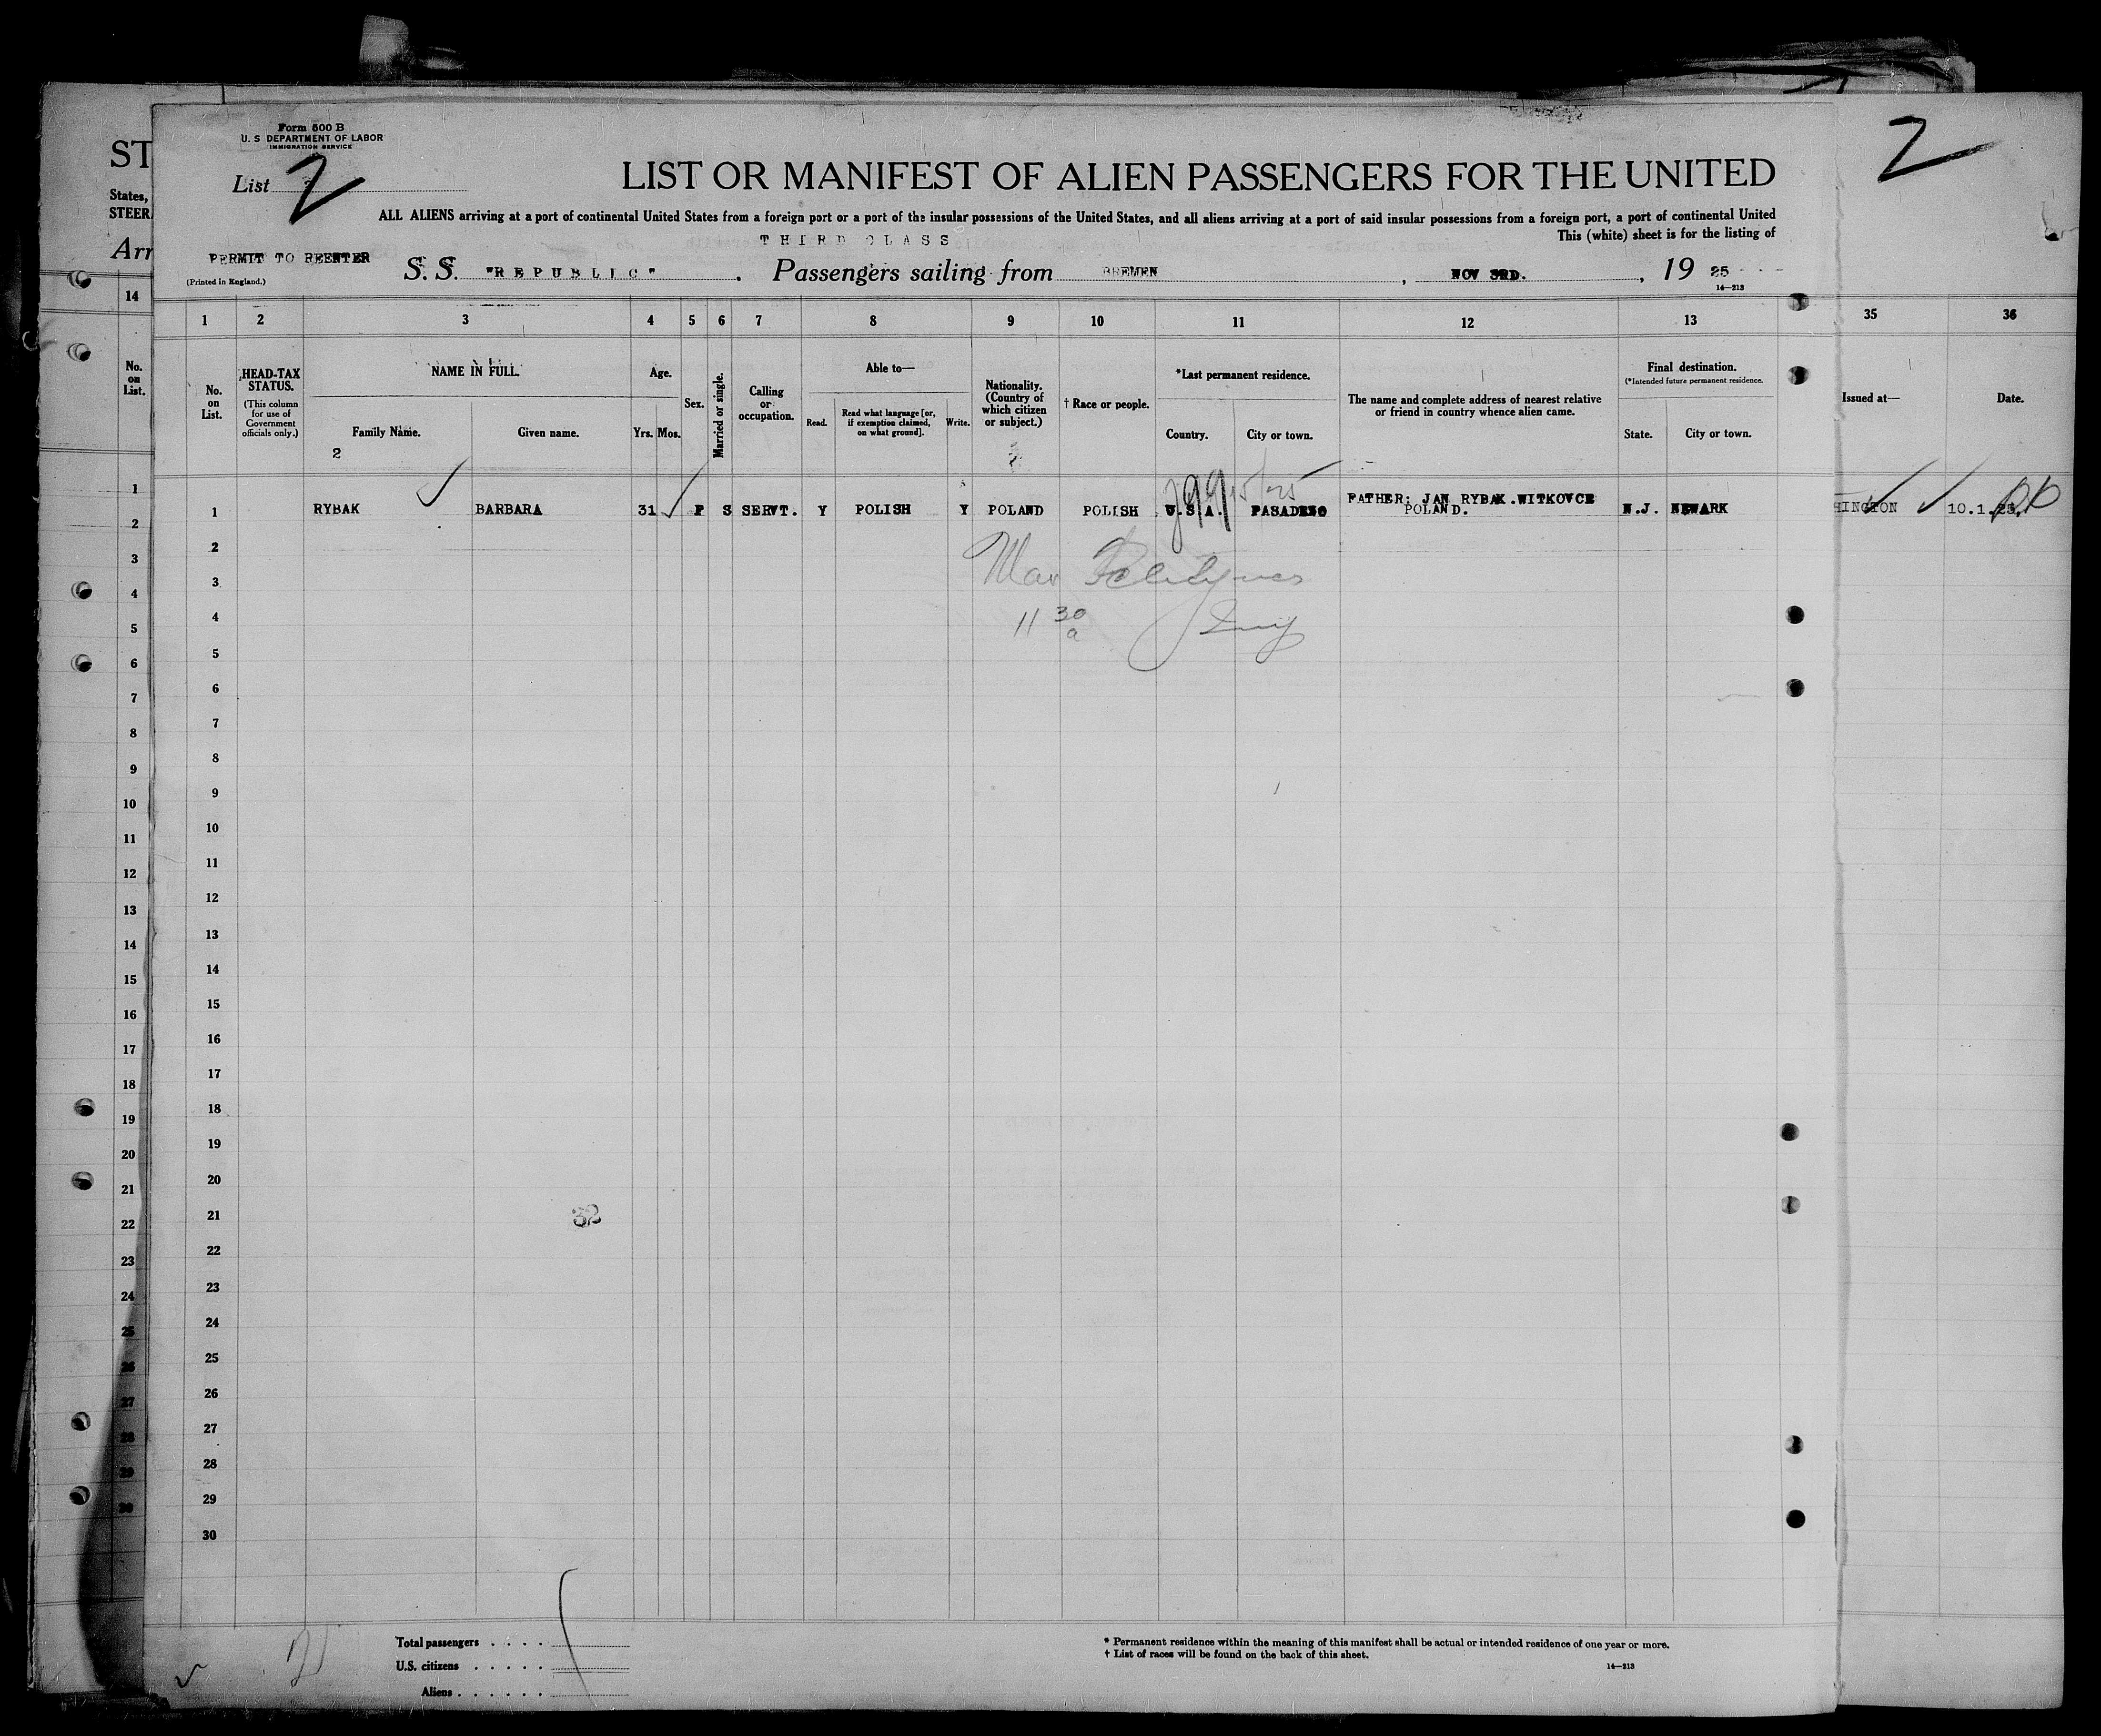 Form 500 B
U. S DEPARTMENT OF LABOR
IMMIGRATION SERVICE
List 2
LIST OR MANIFEST OF ALIEN PASSENGERS FOR THE UNITED
2
ST
States,
STEER
Arr
ALL ALIENS arriving at a port of continental United States from a foreign port or a port of the insular possessions of the United States, and all aliens arriving at a port of said insular possessions from a foreign port, a port of continental United
THIRD CLASS
This (white) sheet is for the listing of
PERMIT TO REENTER
(Printed in England.)
S. S. "REPUBLIC". Passengers sailing from BREMEN, NOV 3RD., 19 25
14—213
14
1 2 3 4 5 6 7 8 9 10 11 12 13
35 36
No. on List.
No. on List.
HEAD-TAX STATUS.
(This column for use of Government officials only.)
NAME IN FULL.
Family Name.
Given name.
2
Age.
Yrs. Mos.
Sex.
Married or single.
Calling or occupation.
Able to—
Read.
Read what language [or, if exemption claimed, on what ground].
Write.
Nationality. (Country of which citizen or subject.)
† Race or people.
*Last permanent residence.
Country.
City or town.
The name and complete address of nearest relative or friend in country whence alien came.
Final destination.
(*Intended future permanent residence.
State.
City or town.
Issued at—
Date.
1 RYBAK BARBARA 31 F S SERVT. Y POLISH Y POLAND POLISH U.S.A. PASADENO FATHER: JAN RYBAK.WITKOVCE POLAND. N.J. NEWARK
HINGTON 10.1.25.
11 30 a
2
3
4
5
6
7
8
9
10
11
12
13
14
15
16
17
18
19
20
21
32
22
23
24
25
26
27
28
29
30
1
2
3
4
5
6
7
8
9
10
11
12
13
14
15
16
17
18
19
20
21
22
23
24
25
26
27
28
29
30
Total passengers . . . .
U.S. citizens . . . . .
Aliens . . . . . .
* Permanent residence within the meaning of this manifest shall be actual or intended residence of one year or more.
† List of races will be found on the back of this sheet.
14—213